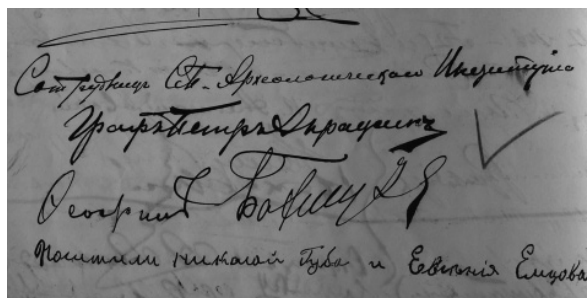 Сотрудникъ СП. Археологическаго Института
Графъ Петръ Апраксинъ
Посетили Николай Губа и Евгенія Емцова